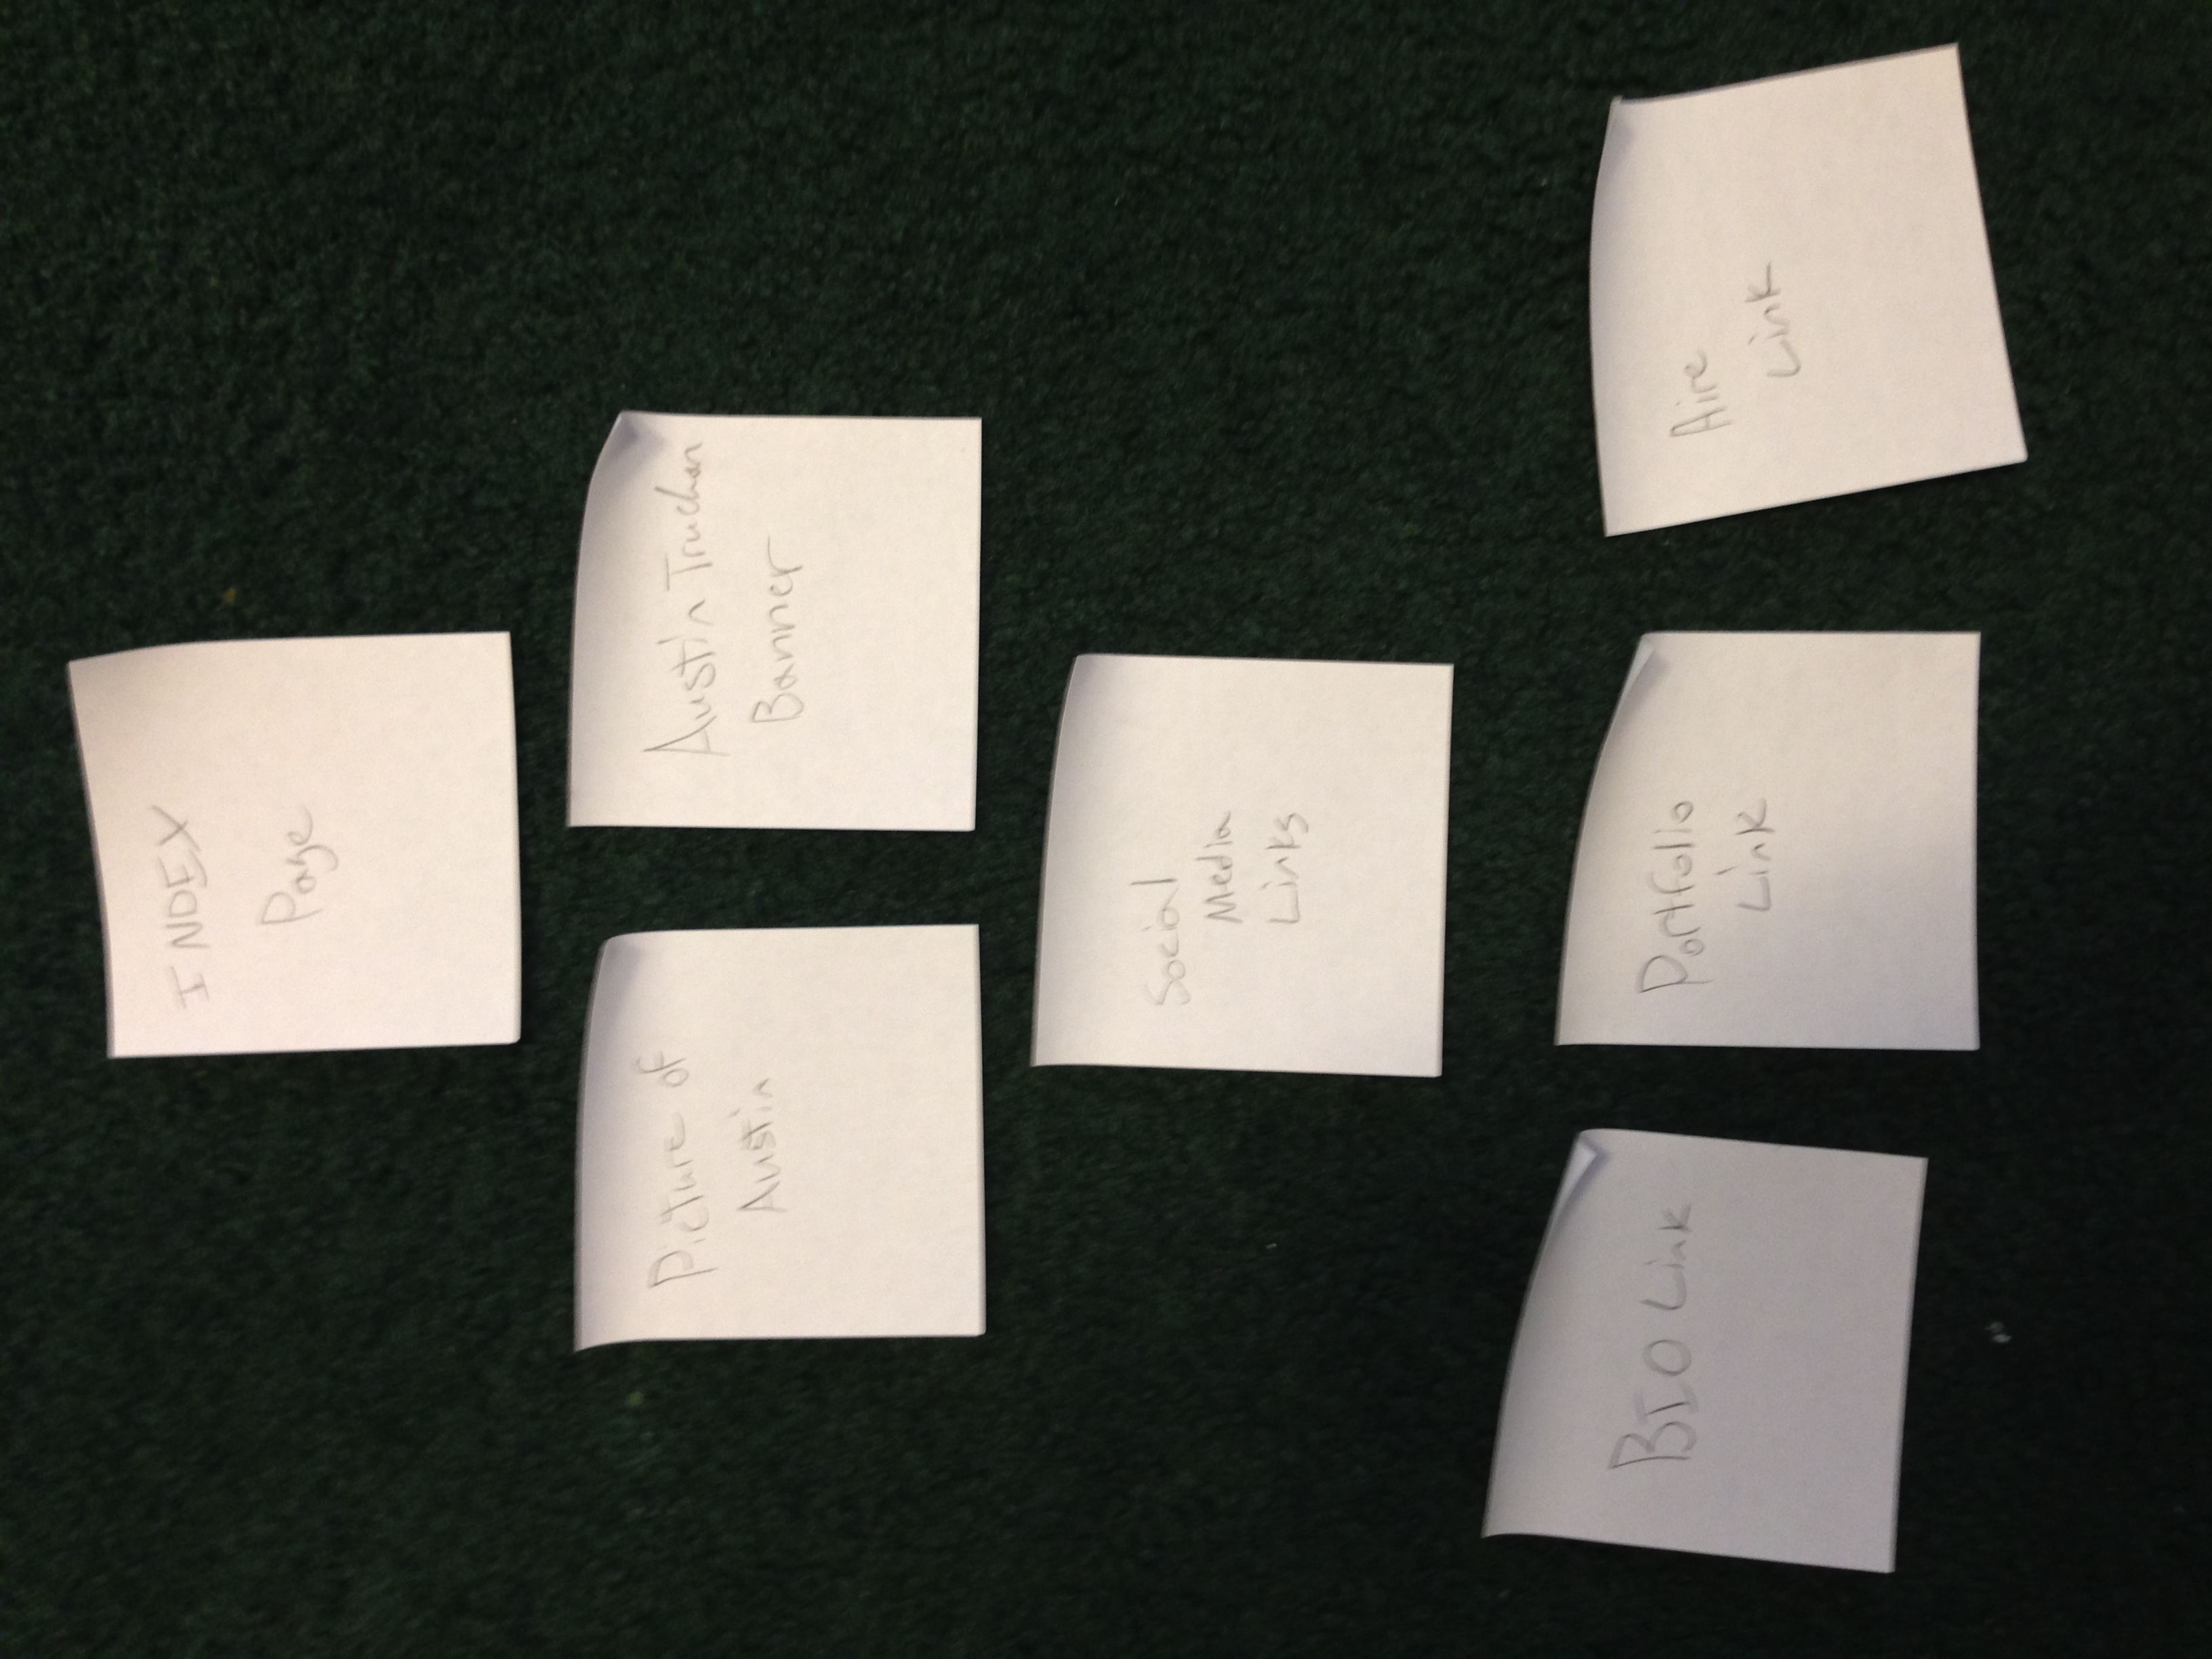 INDEX
Page
Picture of
Austin
Austin Truchan
Banner
Social
Media
Links
BIO Link
Portfolio
Link
Aire
Link